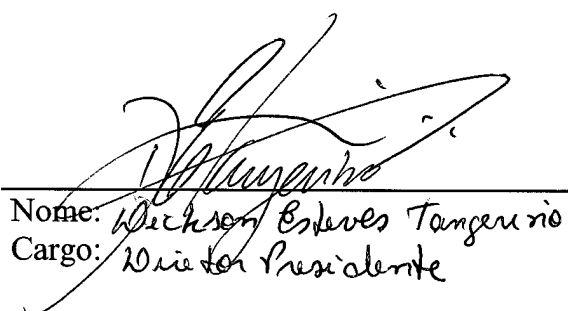 Nome: Dickson Esteves Tangerino
Cargo: Diretor Presidente